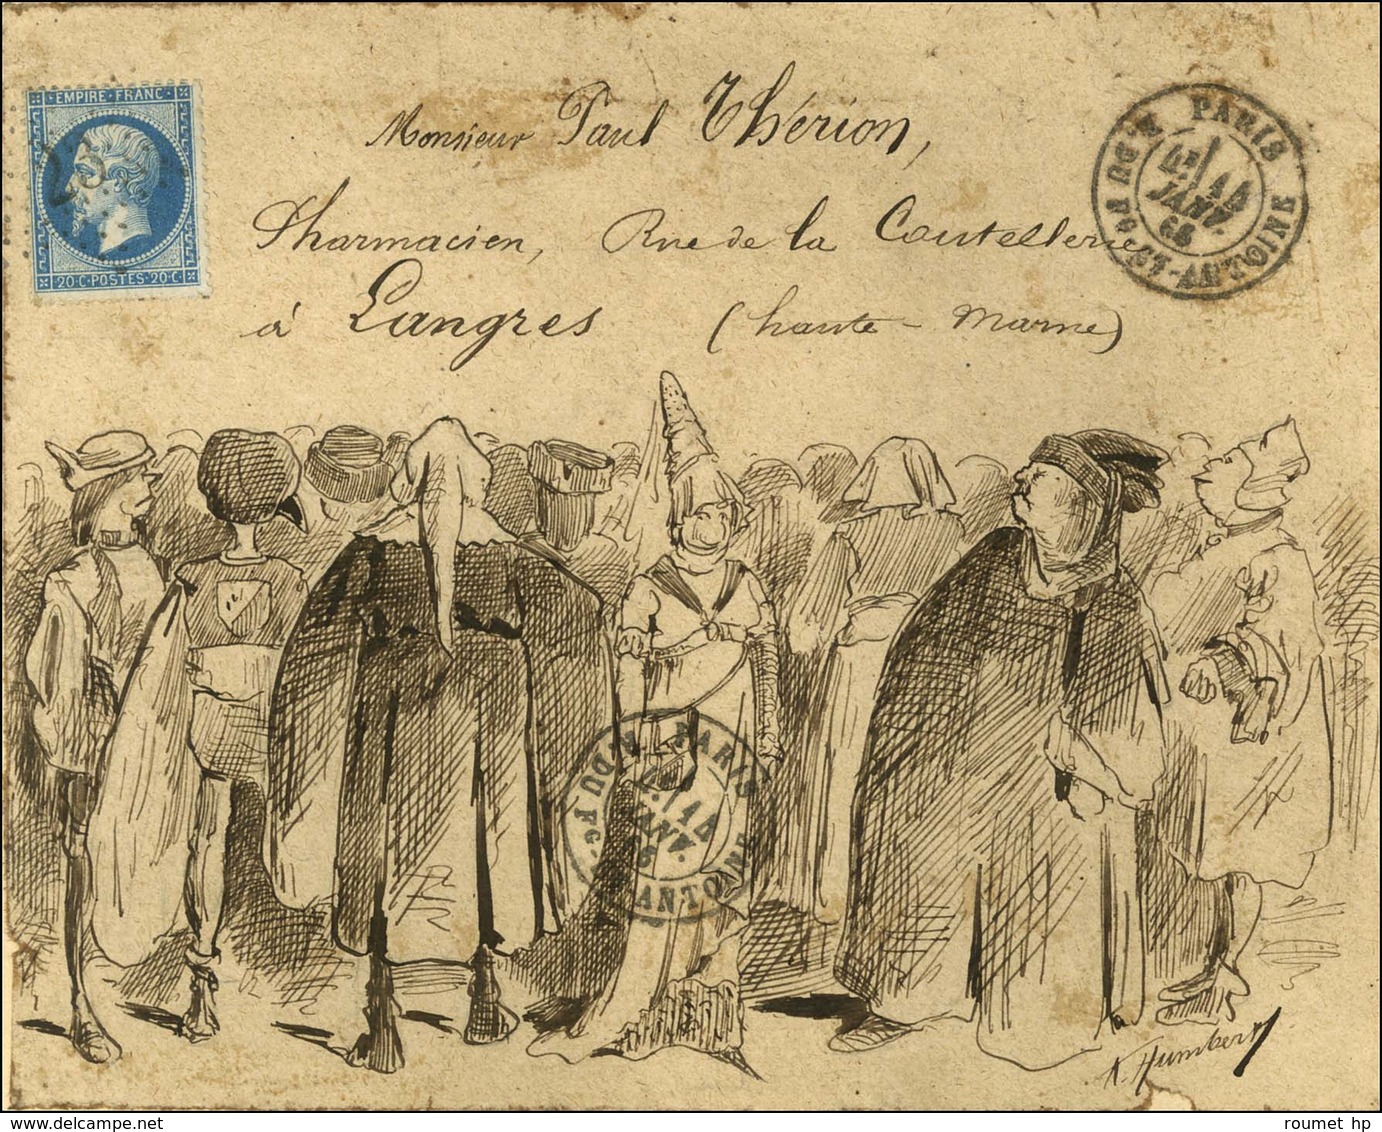 EMPIRE FRANC
20·C·POSTES·20·C
Monsieur Paul Thérion,
Pharmacien, Rue de la Coutellerie
à Langres (haute-Marne)
PARIS
R. DU Fg ST-ANTOINE
4E / 14
JANV.
68
PARIS
R. DU Fg
4E / 14
JANV.
ANTOINE
A. Humbert
roumet hp
www.delcampe.net